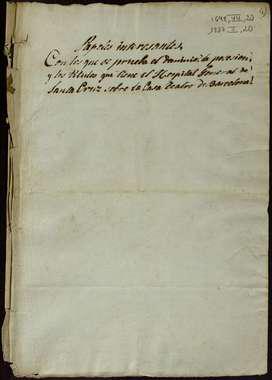 1698, VII, 20
1787, I, 20
Papeles interesantes,
Con los que se prueba el dominio, la posesion,
y los titulos que tiene el Hospital General de
Santa Cruz sobre la Casa teatro de Barcelona.